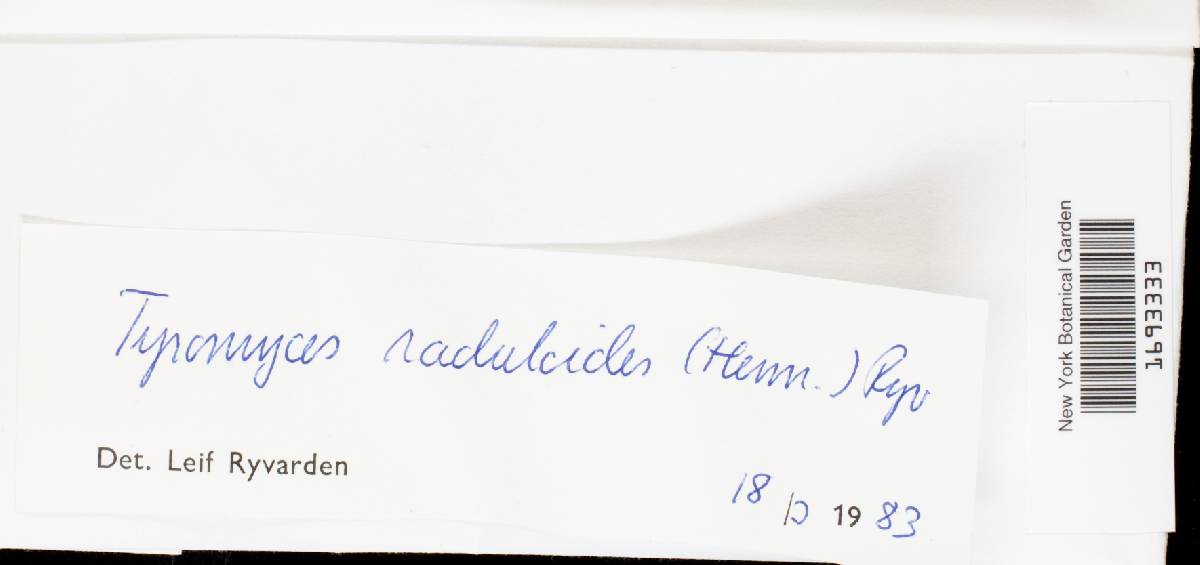 Tyromyces raduloides (Henn.) Ryv
Det. Leif Ryvarden
18 / 1983
New York Botanical Garden